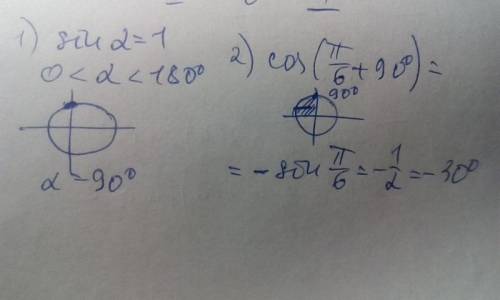 1) sin α = 1
0 < α < 180°
α = 90°
2) cos(π/6 + 90°) =
90°
= - sin π/6 = - 1/2 = - 30°